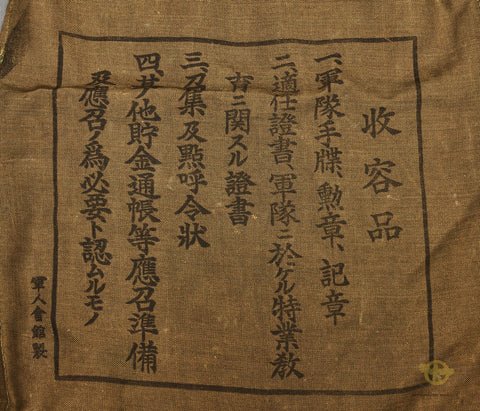 收容品
一、軍隊手牒、勲章、記章
二、適任證書、軍隊ニ於ケル特業教
育ニ関スル證書
三、召集及點呼令状
四、其ノ他貯金通帳等應召準備
及應召ノ為必要ト認ムルモノ
軍人會館製